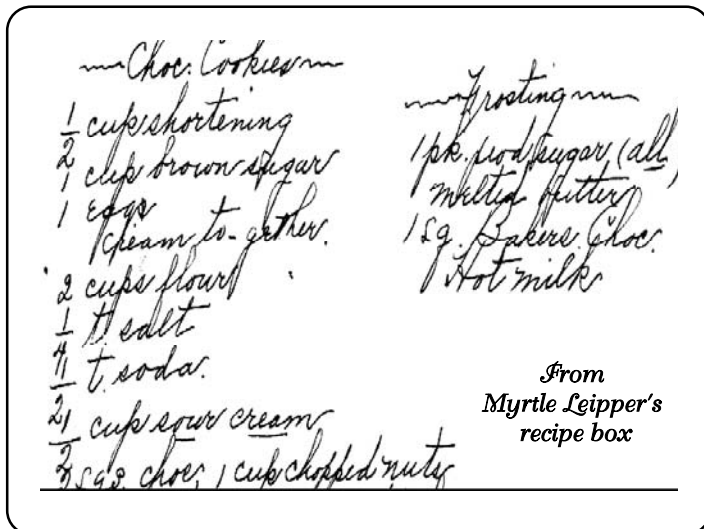 Choc. Cookies
1/2 cup shortening
1 cup brown sugar
1 eggs
cream to-gether.
2 cups flour
1/4 t. salt
1/2 t. soda.
1/2 cup sour cream
sqs. choc, 1 cup chopped nuts
Frosting
1 pk. pod. sugar (all)
melted butter
1 sq. Bakers Choc.
Hot milk
From
Myrtle Leipper's
recipe box